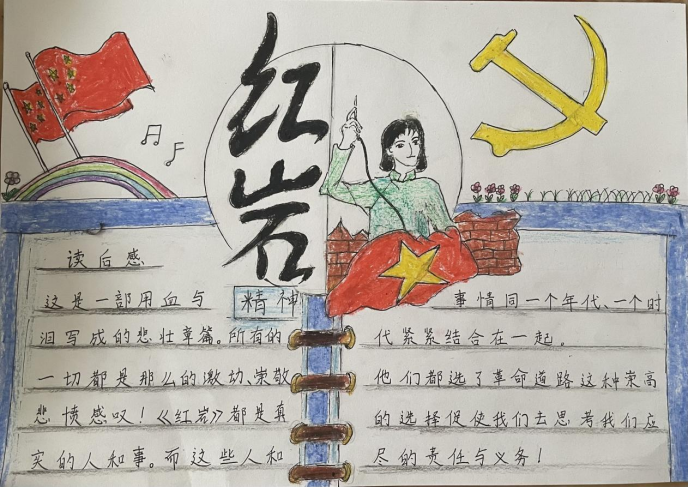 红岩
读后感
精神
这是一部用血与
泪写成的悲壮章篇。所有的
一切都是那么的激动、崇敬
悲愤感叹！《红岩》都是真
实的人和事。而这些人和
事情同一个年代、一个时
代紧紧结合在一起。
他们都选了革命道路这种崇高
的选择促使我们去思考我们应
尽的责任与义务！